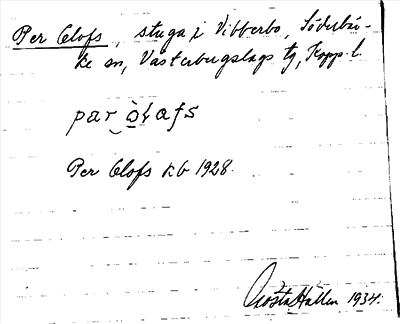 Per Olofs, stuga i Vibberbo, Söderbär-
ke sn, Västerbergslags tg, Kopp. l.
par ò̱ɫafs
Per Olofs kb 1928.
Gösta Hallén 1934.